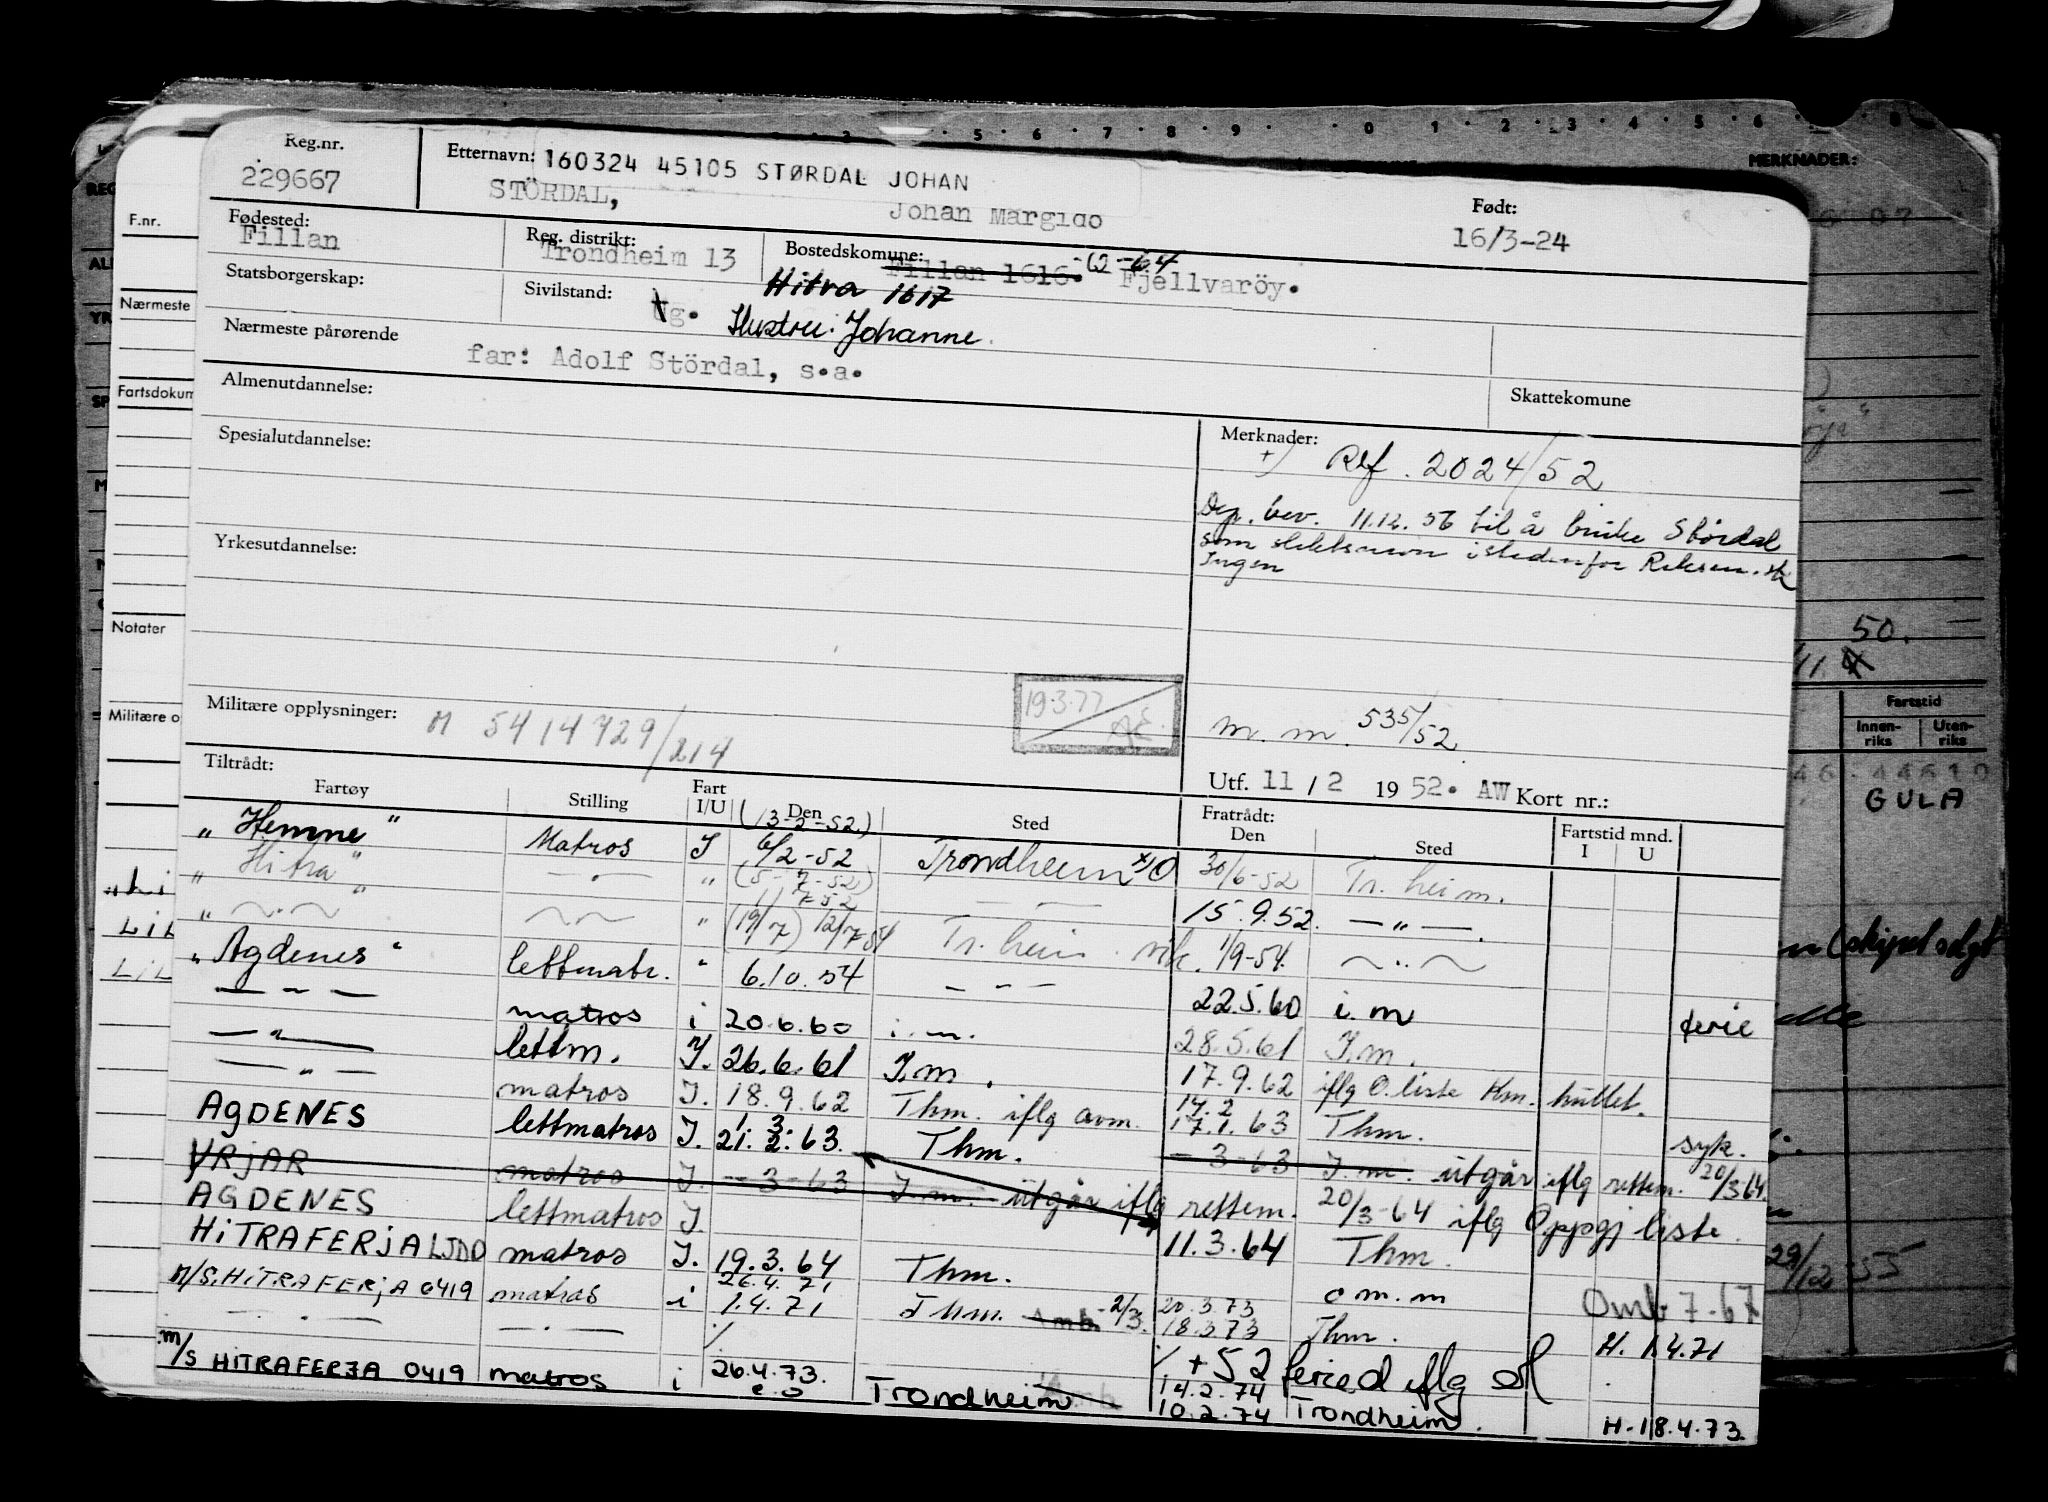 Reg.nr.
229667
Etternavn: 160324 45105 STØRDAL JOHAN
STÖRDAL, Johan Margido
Født:
16/3-24
Fødested:
Fillan
Reg. distrikt:
Trondheim 13
Bostedskomune:
Fillan 1616. Fjellvaröy.
Hitra 1617
Statsborgerskap:
Sivilstand:
Ug. Hustru: Johanne.
Nærmeste pårørende
far: Adolf Stördal, s.a.
Skattekomune
Almenutdannelse:
Spesialutdannelse:
Yrkesutdannelse:
Merknader:
+) Ref. 2024/52
Dep. bev. 11.12.56 til å bruke Størdal
som slektsnavn istedenfor
Ingen
Militære opplysninger: M 5414729/214
19.3.77
m.m. 535/52
Utf. 11 / 2 1952. AW Kort nr.:
Tiltrådt:
Fartøy Stilling Fart I/U Den Sted Fratrådt: Den Sted Fartstid mnd. I U
(13-2-52)
" Hemne " Matros I 6/2-52 Trondheim 30/6-52 Tr.heim.
" Hitra " " (5-7-52) 15.9.52. — " —.
" (19/7) 12/7-54 Tr.heim 1/9-54
" Agdenes " lettmatr. " 6.10.54 22.5.60 i.m ferie
— " — matros i 20.6.60 i.m. 28.5.61 I.m.
— " — lettm. I. 26.6.61 I.m. 17.9.62 iflg O.liste
— " — matros I. 18.9.62 Thm. iflg 17.1.63 Thm. syk.
AGDENES lettmatros I. 21.2.63. Thm. -3-63 I.m. utgår iflg rettem. 20/3 64.
YRJAR matros I. -3-63 I.m. utgår iflg rettem. 20/3-64 iflg Oppgj liste.
AGDENES lettmatros I. 11.3.64 Thm.
HITRAFERJA LJDD matros I. 19.3.64 Thm. o m.m Omb 7.67
26.4.71
M/S. HITRAFERJA 0419 matros i 1.4.71 Thm. 20.3.73
18.3.73 Thm. H. 1.4.71
+ 52 feried iflg
m/s HITRAFERJA 0419 matros i 26.4.73. Trondheim 14.2.74
10.2.74 Trondheim. H. 18.4.73.
F.nr.
Nærmeste
Fartsdokum
Notater
Militære o
MERKNADER:
50.
Fartstid
Innen-
riks
Uten-
riks
GULA
(skipet solgt
29/12-55